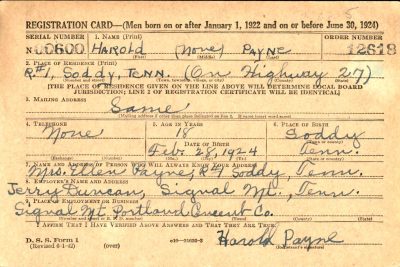 REGISTRATION CARD—(Men born on or after January 1, 1922 and on or before June 30, 1924)
SERIAL NUMBER 1. NAME (Print) ORDER NUMBER
N 00600 HAROLD (None) PAYNE 12618
(First) (Middle) (Last)
2. PLACE OF RESIDENCE (Print)
R#1, Soddy, Tenn. (On Highway 27)
[THE PLACE OF RESIDENCE GIVEN ON THE LINE ABOVE WILL DETERMINE LOCAL BOARD
JURISDICTION; LINE 2 OF REGISTRATION CERTIFICATE WILL BE IDENTICAL]
3. MAILING ADDRESS
Same
[Mailing address if other than place indicated on line 2. If same insert word same]
4. TELEPHONE 5. AGE IN YEARS 6. PLACE OF BIRTH
None 18 Soddy
DATE OF BIRTH
Feb. 28, 1924 Tenn.
7. NAME AND ADDRESS OF PERSON WHO WILL ALWAYS KNOW YOUR ADDRESS
Mrs. Ellen Payne, R#1 Soddy, Tenn.
8. EMPLOYER'S NAME AND ADDRESS
Jerry Duncan, Signal Mt., Tenn.
9. PLACE OF EMPLOYMENT OR BUSINESS
Signal Mt. Portland Cement Co.
I AFFIRM THAT I HAVE VERIFIED ABOVE ANSWERS AND THAT THEY ARE TRUE.
D. S. S. Form 1
(Revised 6-1-42) (over) Harold Payne